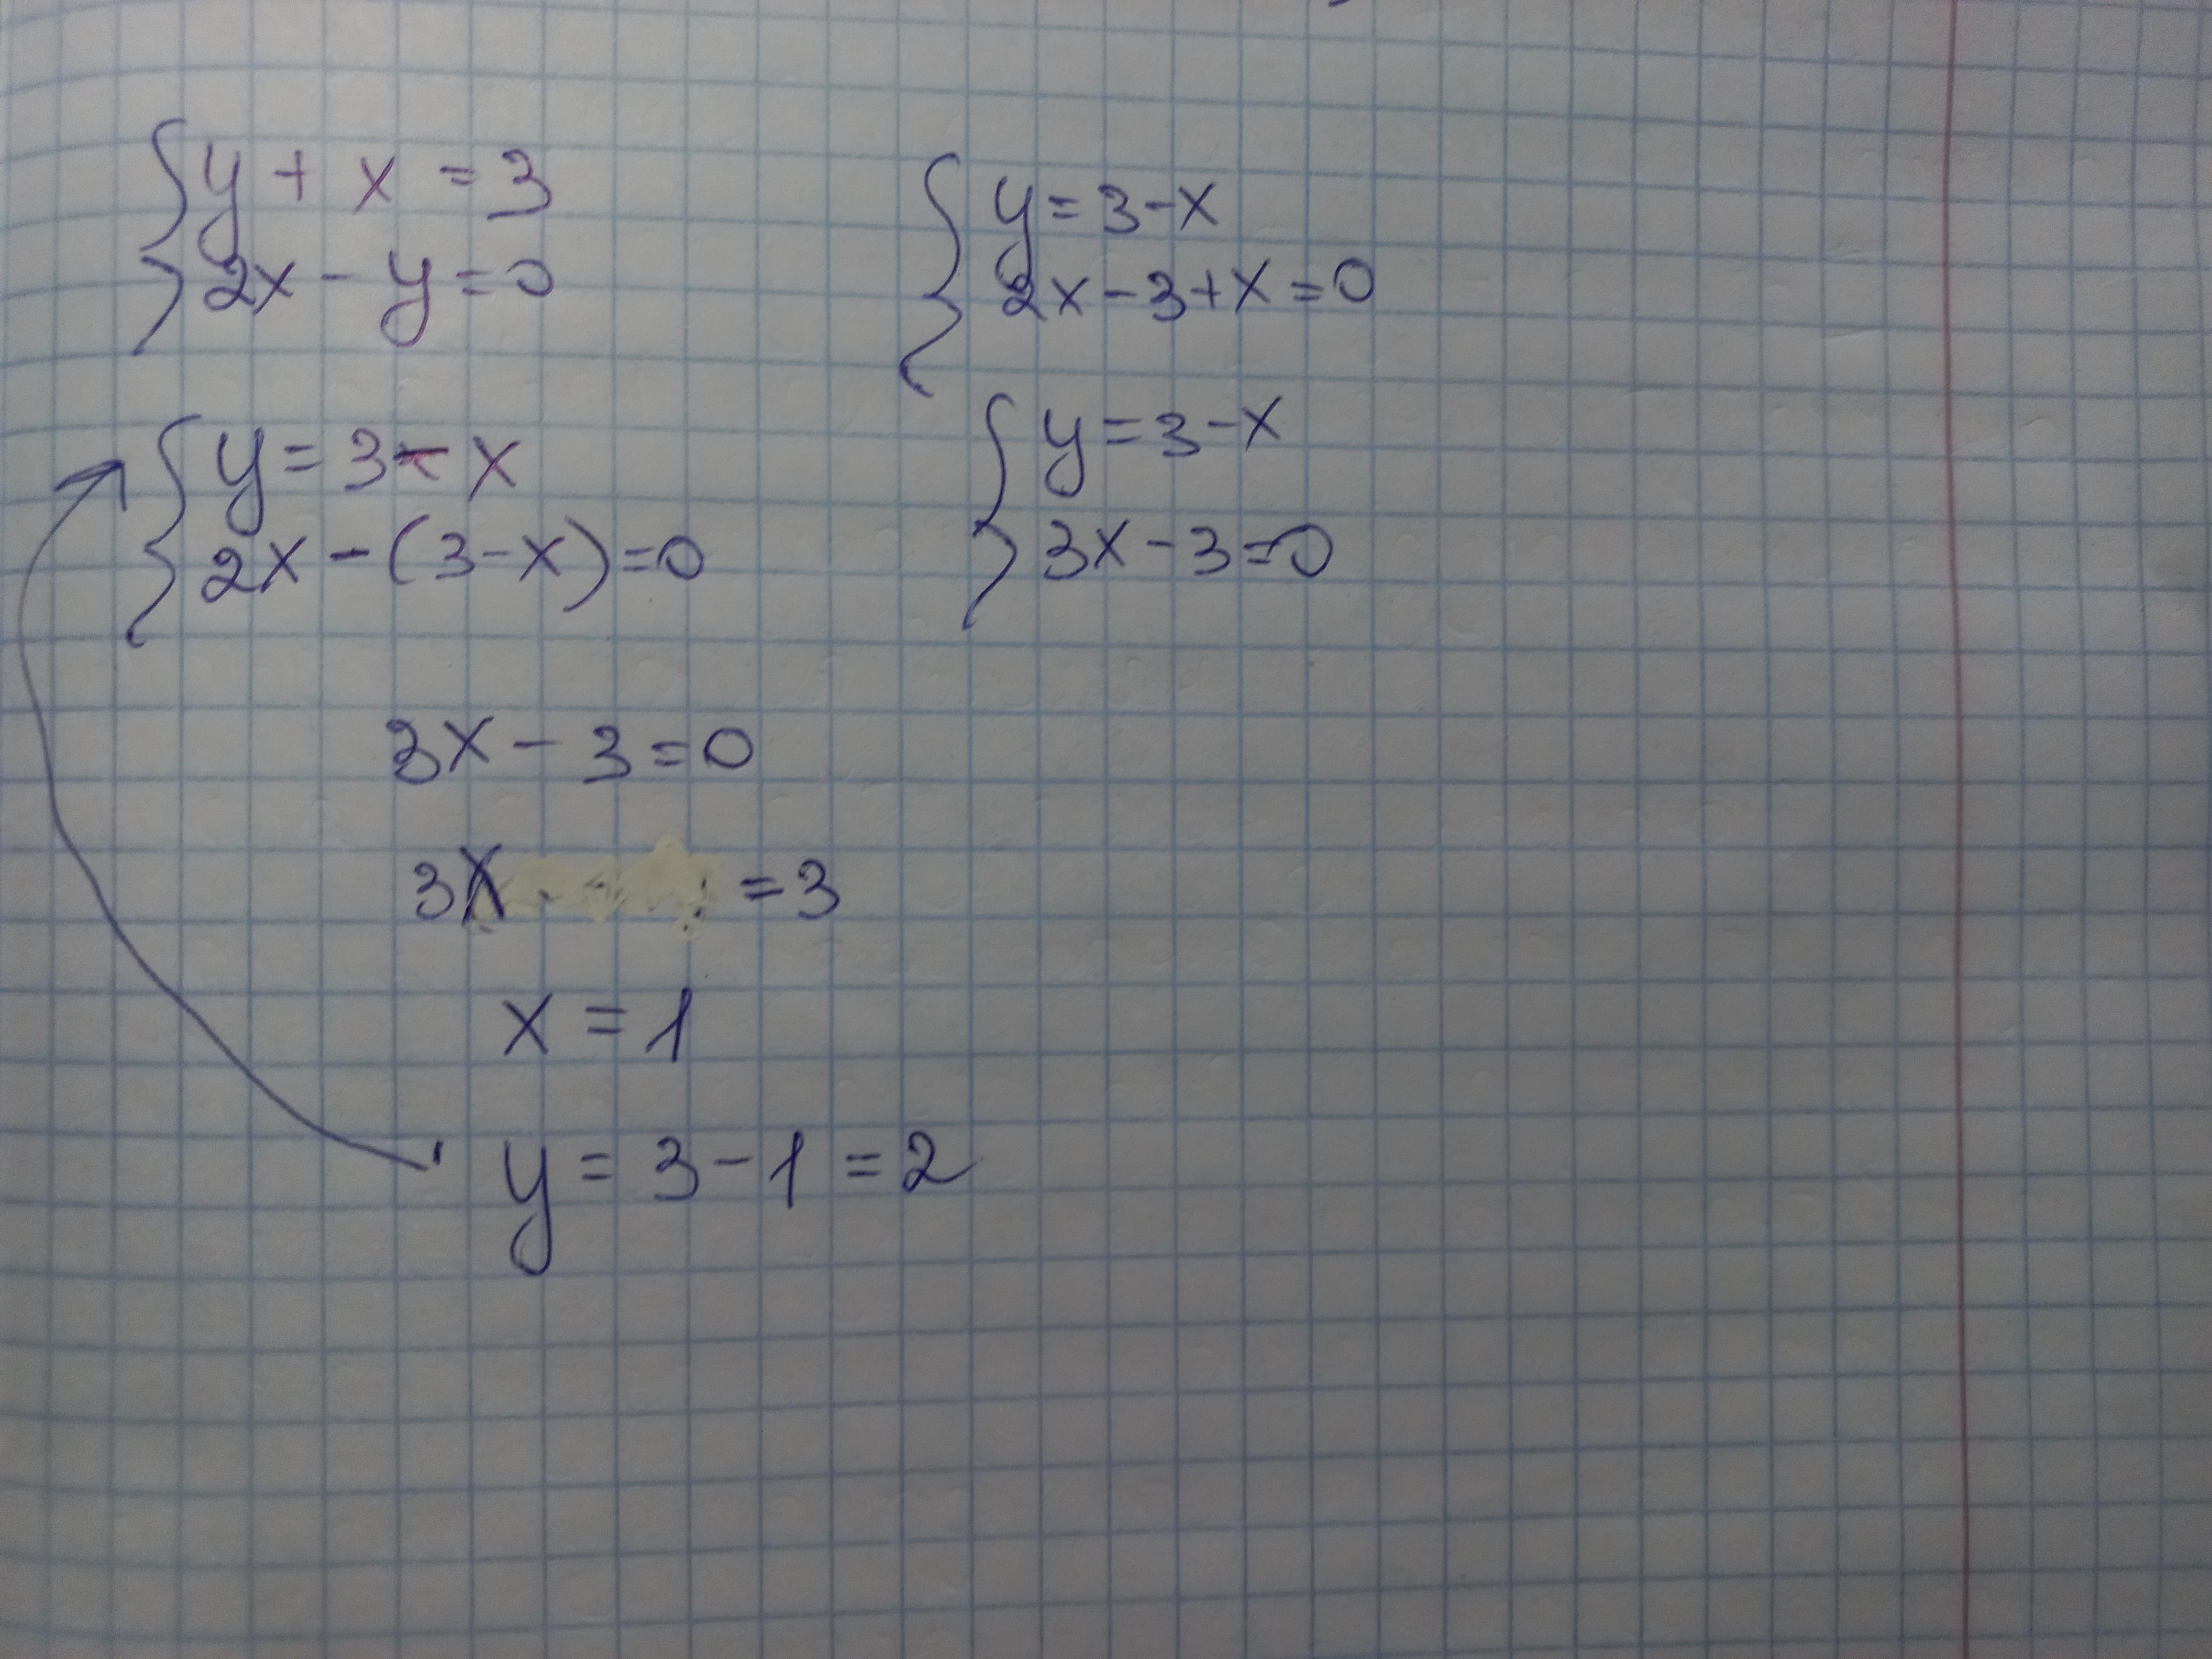 y + x = 3
2x - y = 0
y = 3 - x
2x - (3 - x) = 0
y = 3 - x
2x - 3 + x = 0
y = 3 - x
3x - 3 = 0
3x - 3 = 0
3x = 3
x = 1
y = 3 - 1 = 2